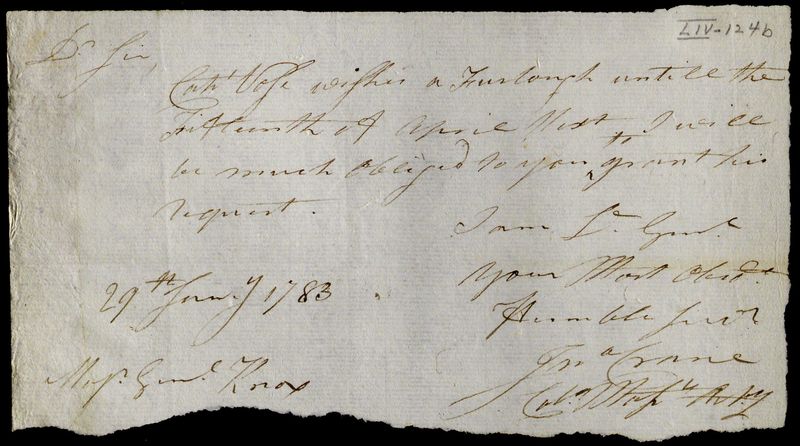 LIV-124b
Dr Sir,
Capt Vose wishes a Furlough untill the
Fifteenth of April Next I will
be much obliged to you to grant his
request.
I am Dr Genl
Your Most Obedt
Humble Servt
29th Jany 1783
Jno Crane
Majr Genl Knox
Colo Mass Arty